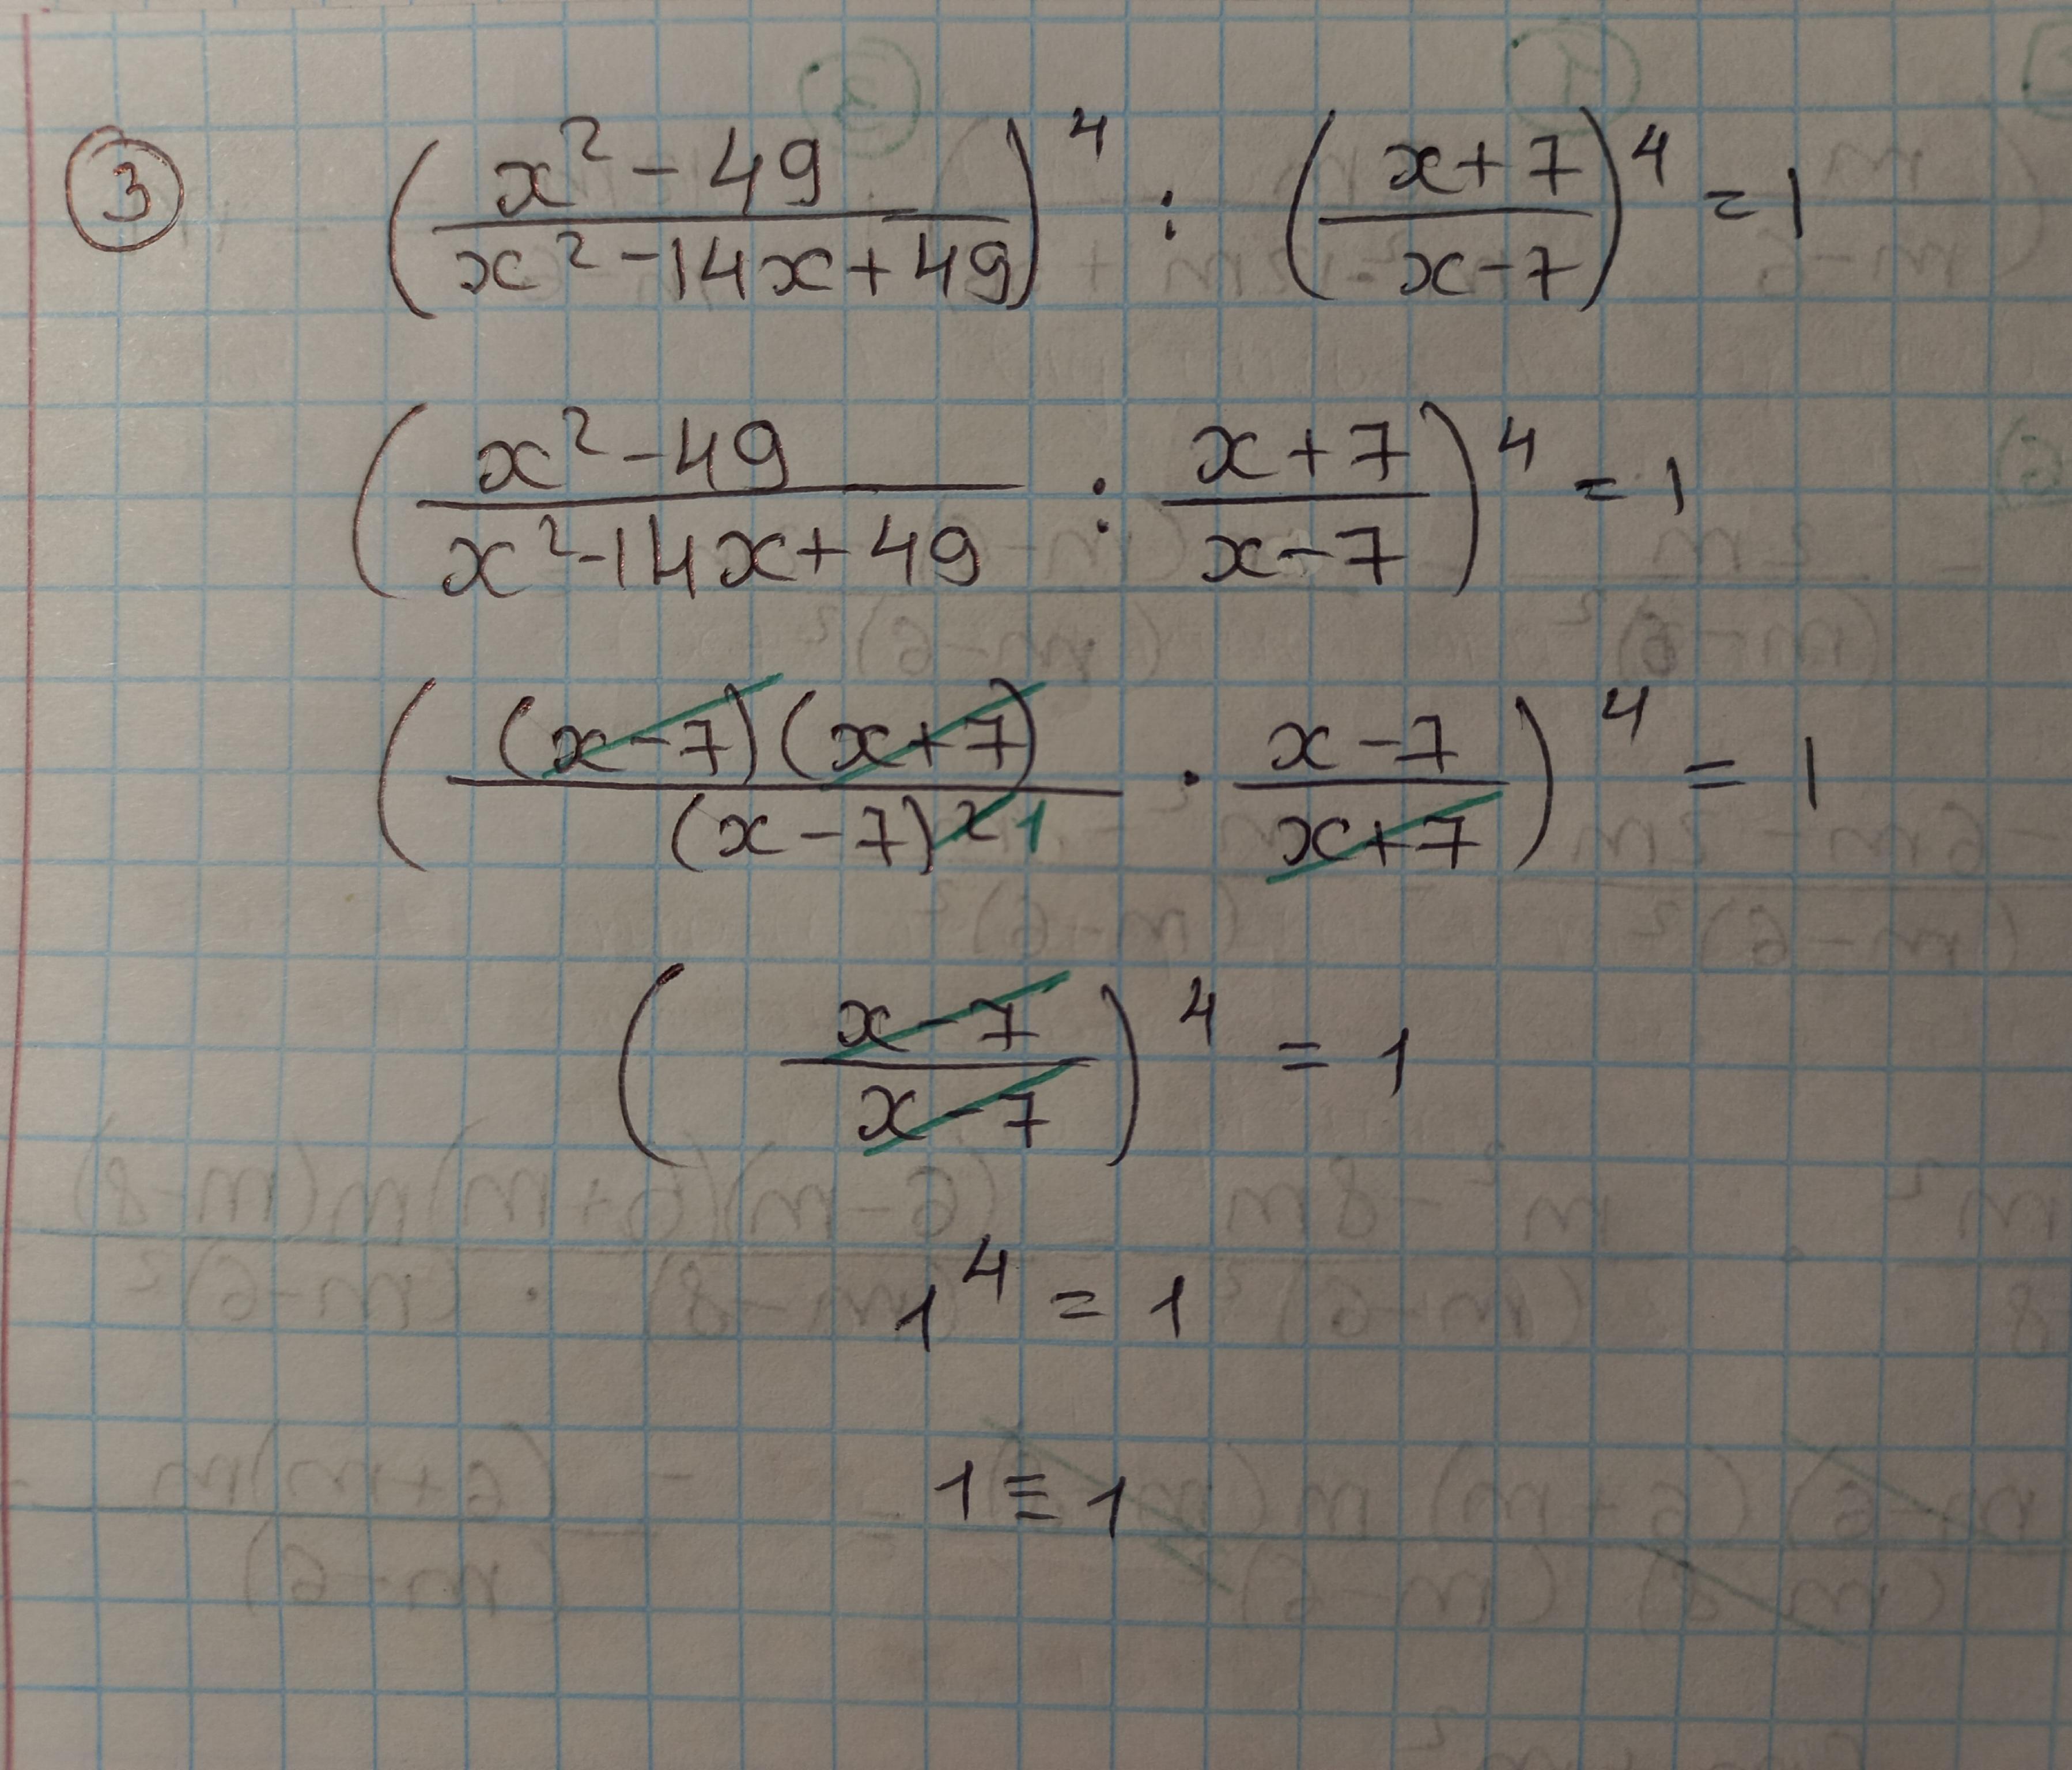 ③ (x² - 49 / x² - 14x + 49)⁴ : (x + 7 / x - 7)⁴ = 1
(x² - 49 / x² - 14x + 49 : x + 7 / x - 7)⁴ = 1
((x - 7)(x + 7) / (x - 7)² 1 · x - 7 / x + 7)⁴ = 1
(x - 7 / x - 7)⁴ = 1
1⁴ = 1
1 ≡ 1